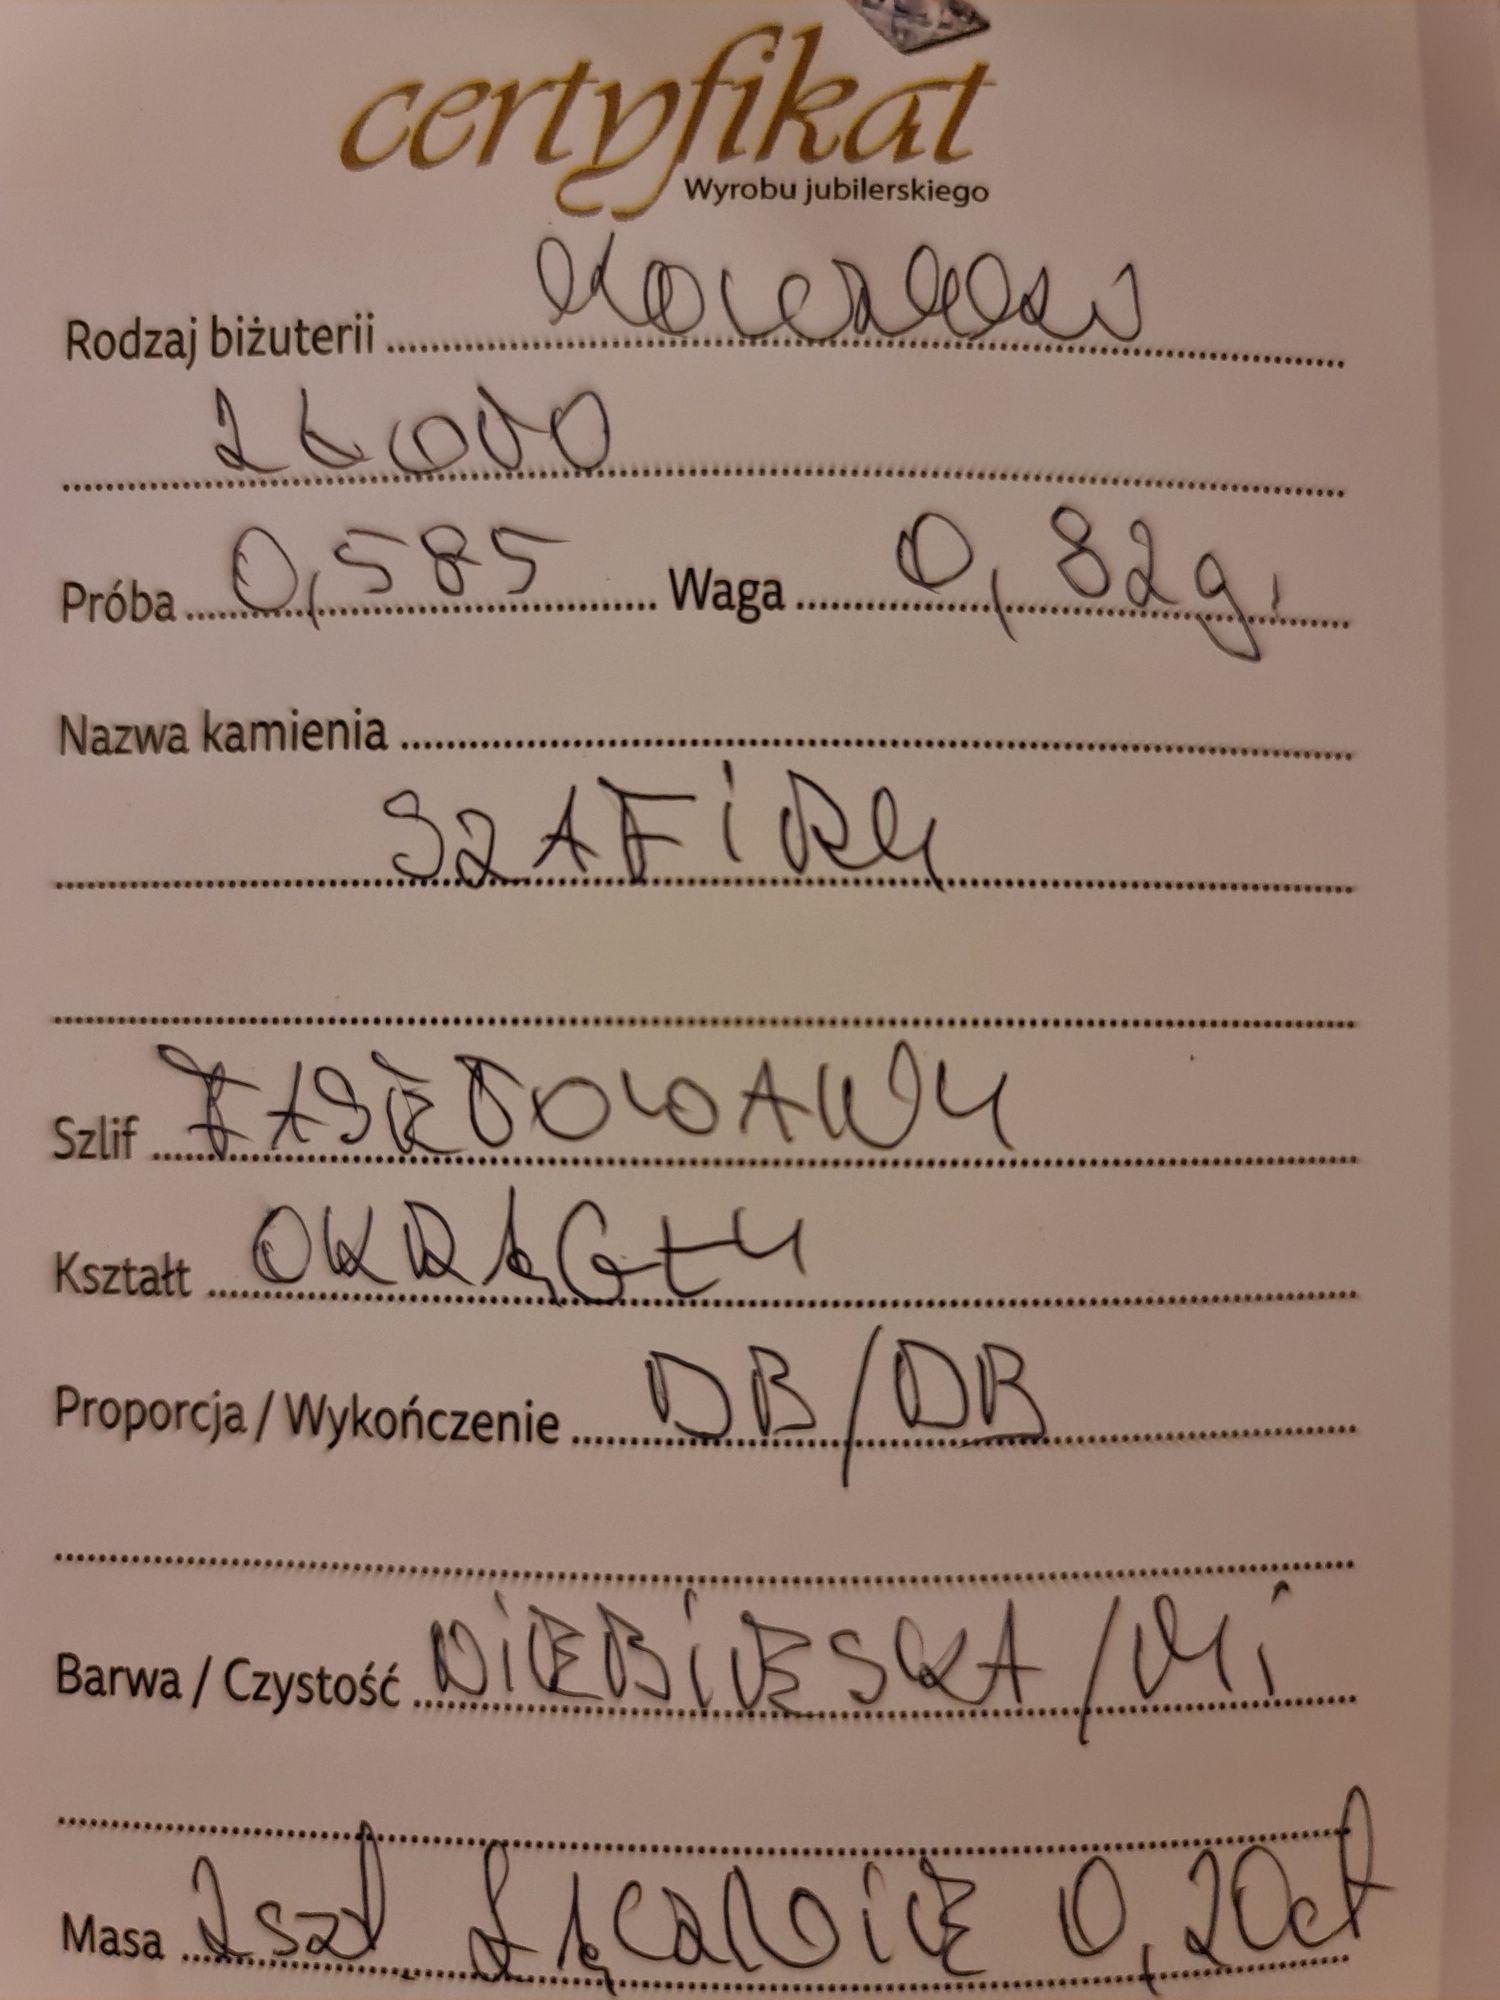 certyfikat
Wyrobu jubilerskiego
Rodzaj biżuterii
Próba 0,585 Waga 0,82g.
Nazwa kamienia
SZAFIRY
Szlif FASETOWANY
Kształt OKRĄGŁY
Proporcja / Wykończenie DB/DB
Barwa / Czystość NIEBIESKA /
Masa 2szt ŁĄCZNIE 0,20ct